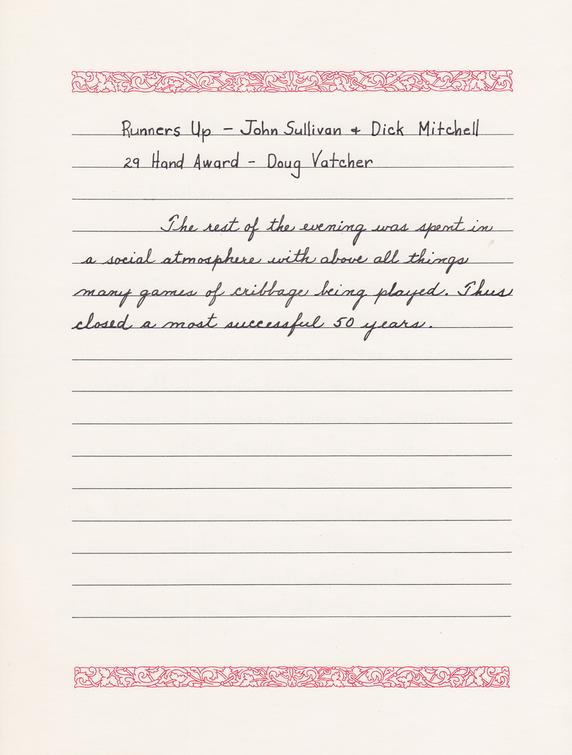 Runners Up - John Sullivan + Dick Mitchell
29 Hand Award - Doug Vatcher
The rest of the evening was spent in
a social atmosphere with above all things
many games of cribbage being played. Thus
closed a most successful 50 years.